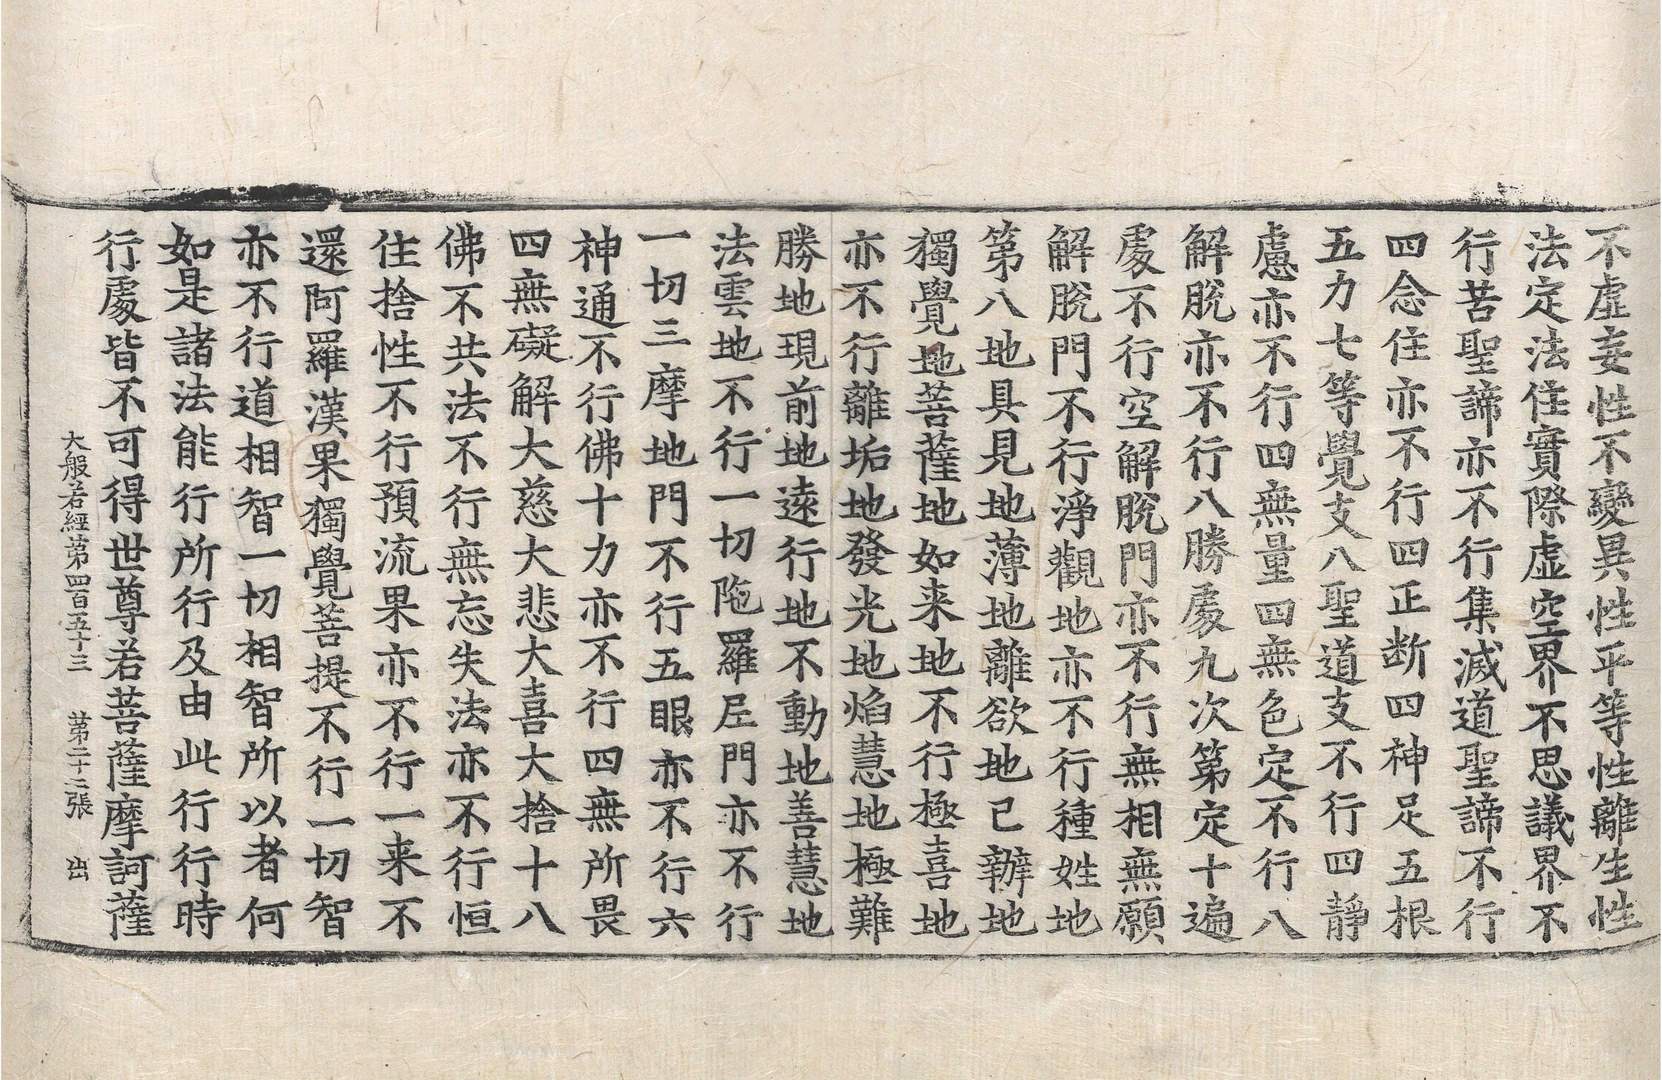 不虛妄性不變異性平等性離生性
法定法住實際虛空界不思議界不
行苦聖諦亦不行集滅道聖諦不行
四念住亦不行四正断四神足五根
五力七等覺支八聖道支不行四靜
慮亦不行四無量四無色定不行八
解脫亦不行八勝處九次第定十遍
處不行空解脫門亦不行無相無願
解脫門不行淨觀地亦不行種姓地
第八地具見地薄地離欲地已辦地
獨覺地菩薩地如来地不行極喜地
亦不行離垢地發光地焰慧地極難
勝地現前地遠行地不動地善慧地
法雲地不行一切陁羅尼門亦不行
一切三摩地門不行五眼亦不行六
神通不行佛十力亦不行四無所畏
四無礙解大慈大悲大喜大捨十八
佛不共法不行無忘失法亦不行恒
住捨性不行預流果亦不行一来不
還阿羅漢果獨覺菩提不行一切智
亦不行道相智一切相智所以者何
如是諸法能行所行及由此行行時
行處皆不可得世尊若菩薩摩訶薩
大般若經苐四百五十三 苐二十二張 出